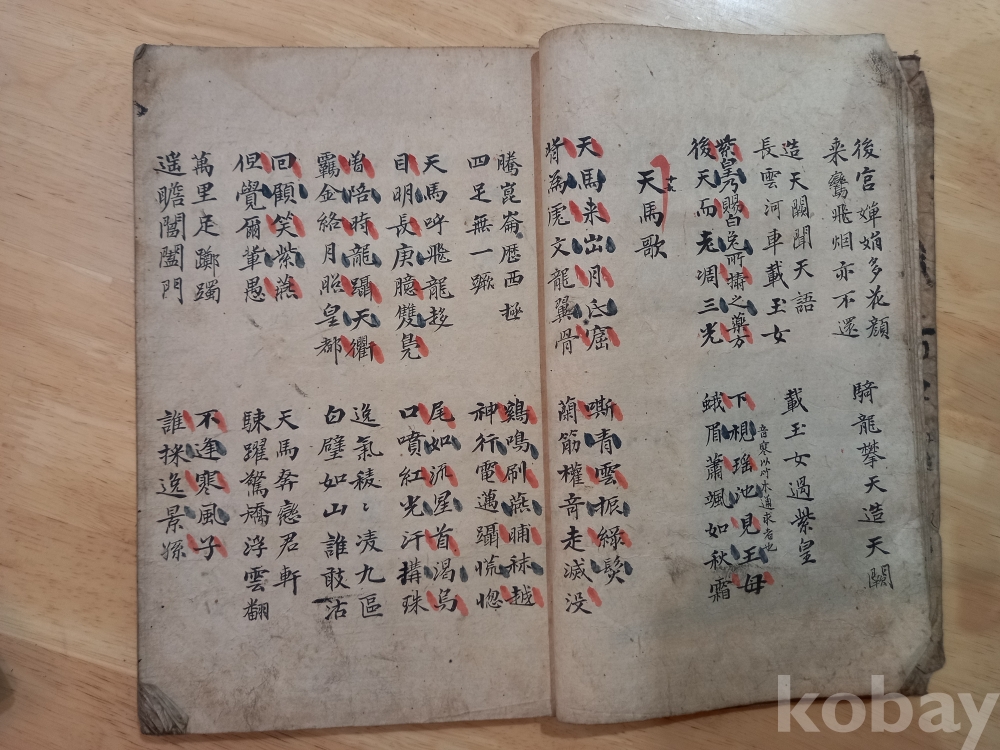 後宮嬋娟多花顔
乘鸞飛烟亦不還
騎龍攀天造天闕
造天闕聞天語
長雲河車載玉女
載玉女過紫皇
紫皇乃賜白兔所擣之藥方
後天而老凋三光
下視瑶池見王母
蛾眉蕭颯如秋霜
天馬歌
天馬来出月氏窟
背為虎文龍翼骨
嘶青雲振綠髮
蘭筋權奇走滅没
騰崑崙歷西極
四足無一蹶
鷄鳴刷燕晡秣越
神行電邁躡慌惚
天馬呼飛龍趍
目明長庚臆雙鳧
尾如流星首渴烏
口噴紅光汗搆珠
曾陪時龍躡天衢
羈金絡月照皇都
逸氣稜〻凌九區
白璧如山誰敢沽
回顧笑紫燕
但覺爾輩愚
天馬奔戀君軒
駷躍驚矯浮雲翻
萬里足躑躅
遥瞻閶闔門
不逢寒風子
誰採逸景孫
kobay